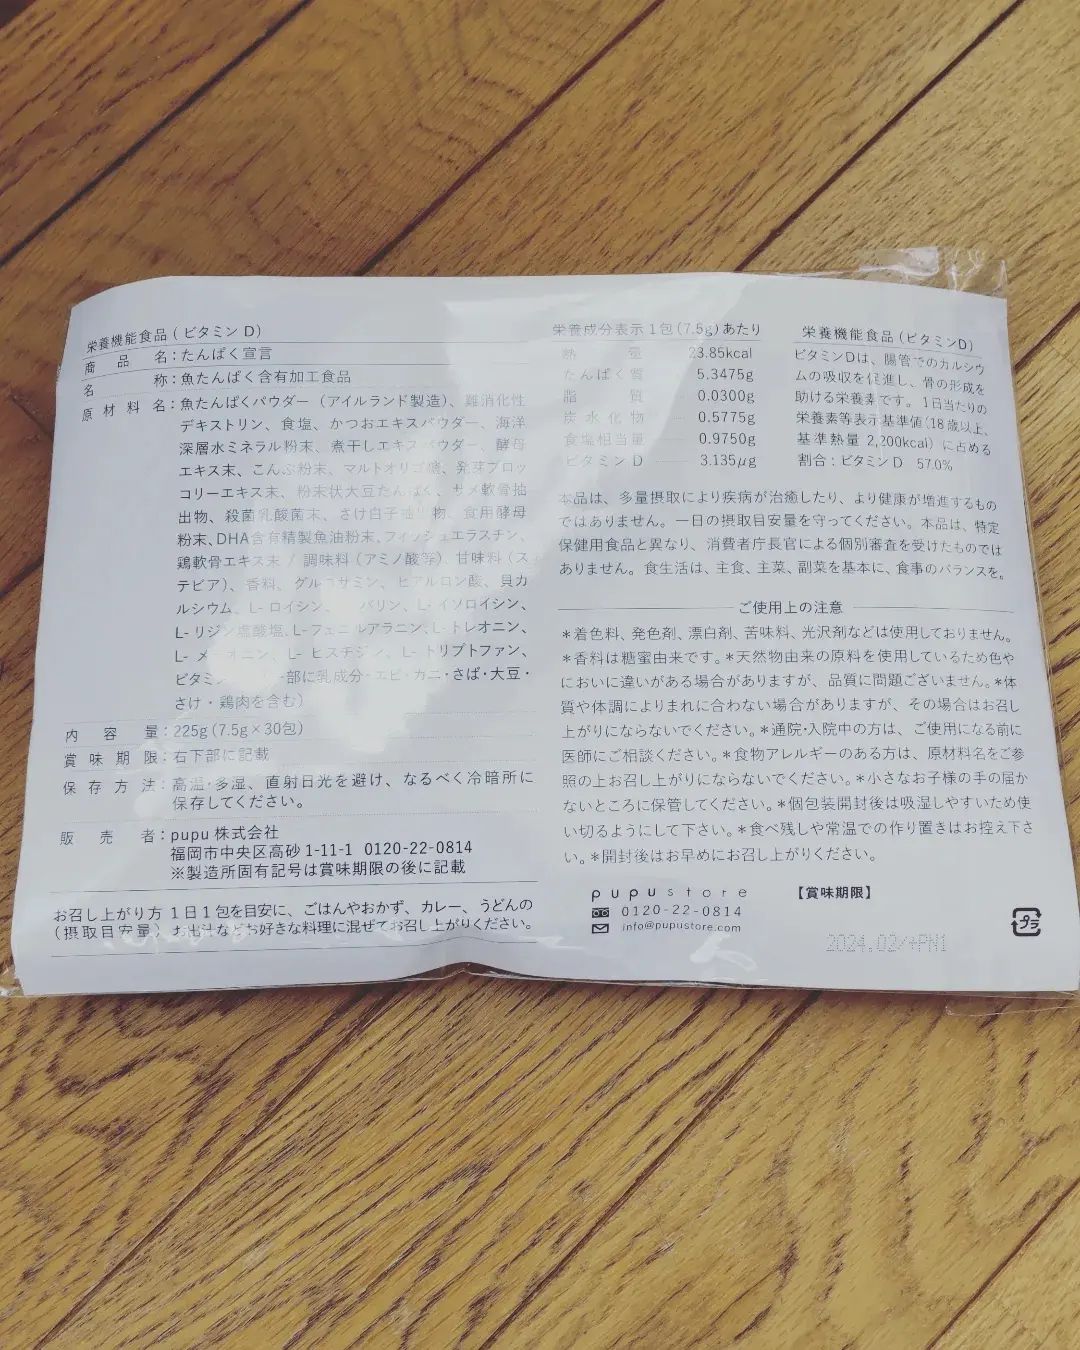 栄養機能食品(ビタミンD)
商品名：たんぱく宣言
名称：魚たんぱく含有加工食品
原材料名：魚たんぱくパウダー（アイルランド製造）、難消化性
デキストリン、食塩、かつおエキスパウダー、海洋
深層水ミネラル粉末、煮干しエキスパウダー、酵母
エキス末、こんぶ粉末、マルトオリゴ糖、発芽ブロッ
コリーエキス末、粉末状大豆たんぱく、サメ軟骨抽
出物、殺菌乳酸菌末、さけ白子抽出物、食用酵母
粉末、DHA含有精製魚油粉末、フィッシュエラスチン、
鶏軟骨エキス末 / 調味料（アミノ酸等）、甘味料（ス
テビア）、香料、グルコサミン、ヒアルロン酸、貝カ
ルシウム、L-ロイシン、バリン、L-イソロイシン、
L-リジン塩酸塩、L-フェニルアラニン、L-トレオニン、
L- L-ヒスチジン、L-トリプトファン、
ビタミン 部に乳成分・エビ・カニ・さば・大豆・
さけ・鶏肉を含む）
内容量：225g(7.5g×30包)
賞味期限：右下部に記載
保存方法：高温・多湿、直射日光を避け、なるべく冷暗所に
保存してください。
販売者：pupu 株式会社
福岡市中央区高砂1-11-1 0120-22-0814
※製造所固有記号は賞味期限の後に記載
お召し上がり方 1日1包を目安に、ごはんやおかず、カレー、うどんの
(摂取目安量) お出汁などお好きな料理に混ぜてお召し上がりください。
栄養成分表示 1包(7.5g)あたり
熱量 23.85kcal
たんぱく質 5.3475g
脂質 0.0300g
炭水化物 0.5775g
食塩相当量 0.9750g
ビタミンD 3.135μg
栄養機能食品(ビタミンD)
ビタミンDは、腸管でのカルシウ
ムの吸収を促進し、骨の形成を
助ける栄養素です。1日当たりの
栄養素等表示基準値(18歳以上、
基準熱量 2,200kcal) に占める
割合：ビタミンD 57.0%
本品は、多量摂取により疾病が治癒したり、より健康が増進するもの
ではありません。一日の摂取目安量を守ってください。本品は、特定
保健用食品と異なり、消費者庁長官による個別審査を受けたものでは
ありません。食生活は、主食、主菜、副菜を基本に、食事のバランスを。
ご使用上の注意
＊着色料、発色剤、漂白剤、苦味料、光沢剤などは使用しておりません。
＊香料は糖蜜由来です。＊天然物由来の原料を使用しているため色や
においに違いがある場合がありますが、品質に問題ございません。＊体
質や体調によりまれに合わない場合がありますが、その場合はお召し
上がりにならないでください。＊通院・入院中の方は、ご使用になる前に
医師にご相談ください。＊食物アレルギーのある方は、原材料名をご参
照の上お召し上がりにならないでください。＊小さなお子様の手の届か
ないところに保管してください。＊個包装開封後は吸湿しやすいため使
い切るようにして下さい。＊食べ残しや常温での作り置きはお控え下さ
い。＊開封後はお早めにお召し上がりください。
pupu store
0120-22-0814
info@pupustore.com
【賞味期限】
2024.02/+PN1
プラ